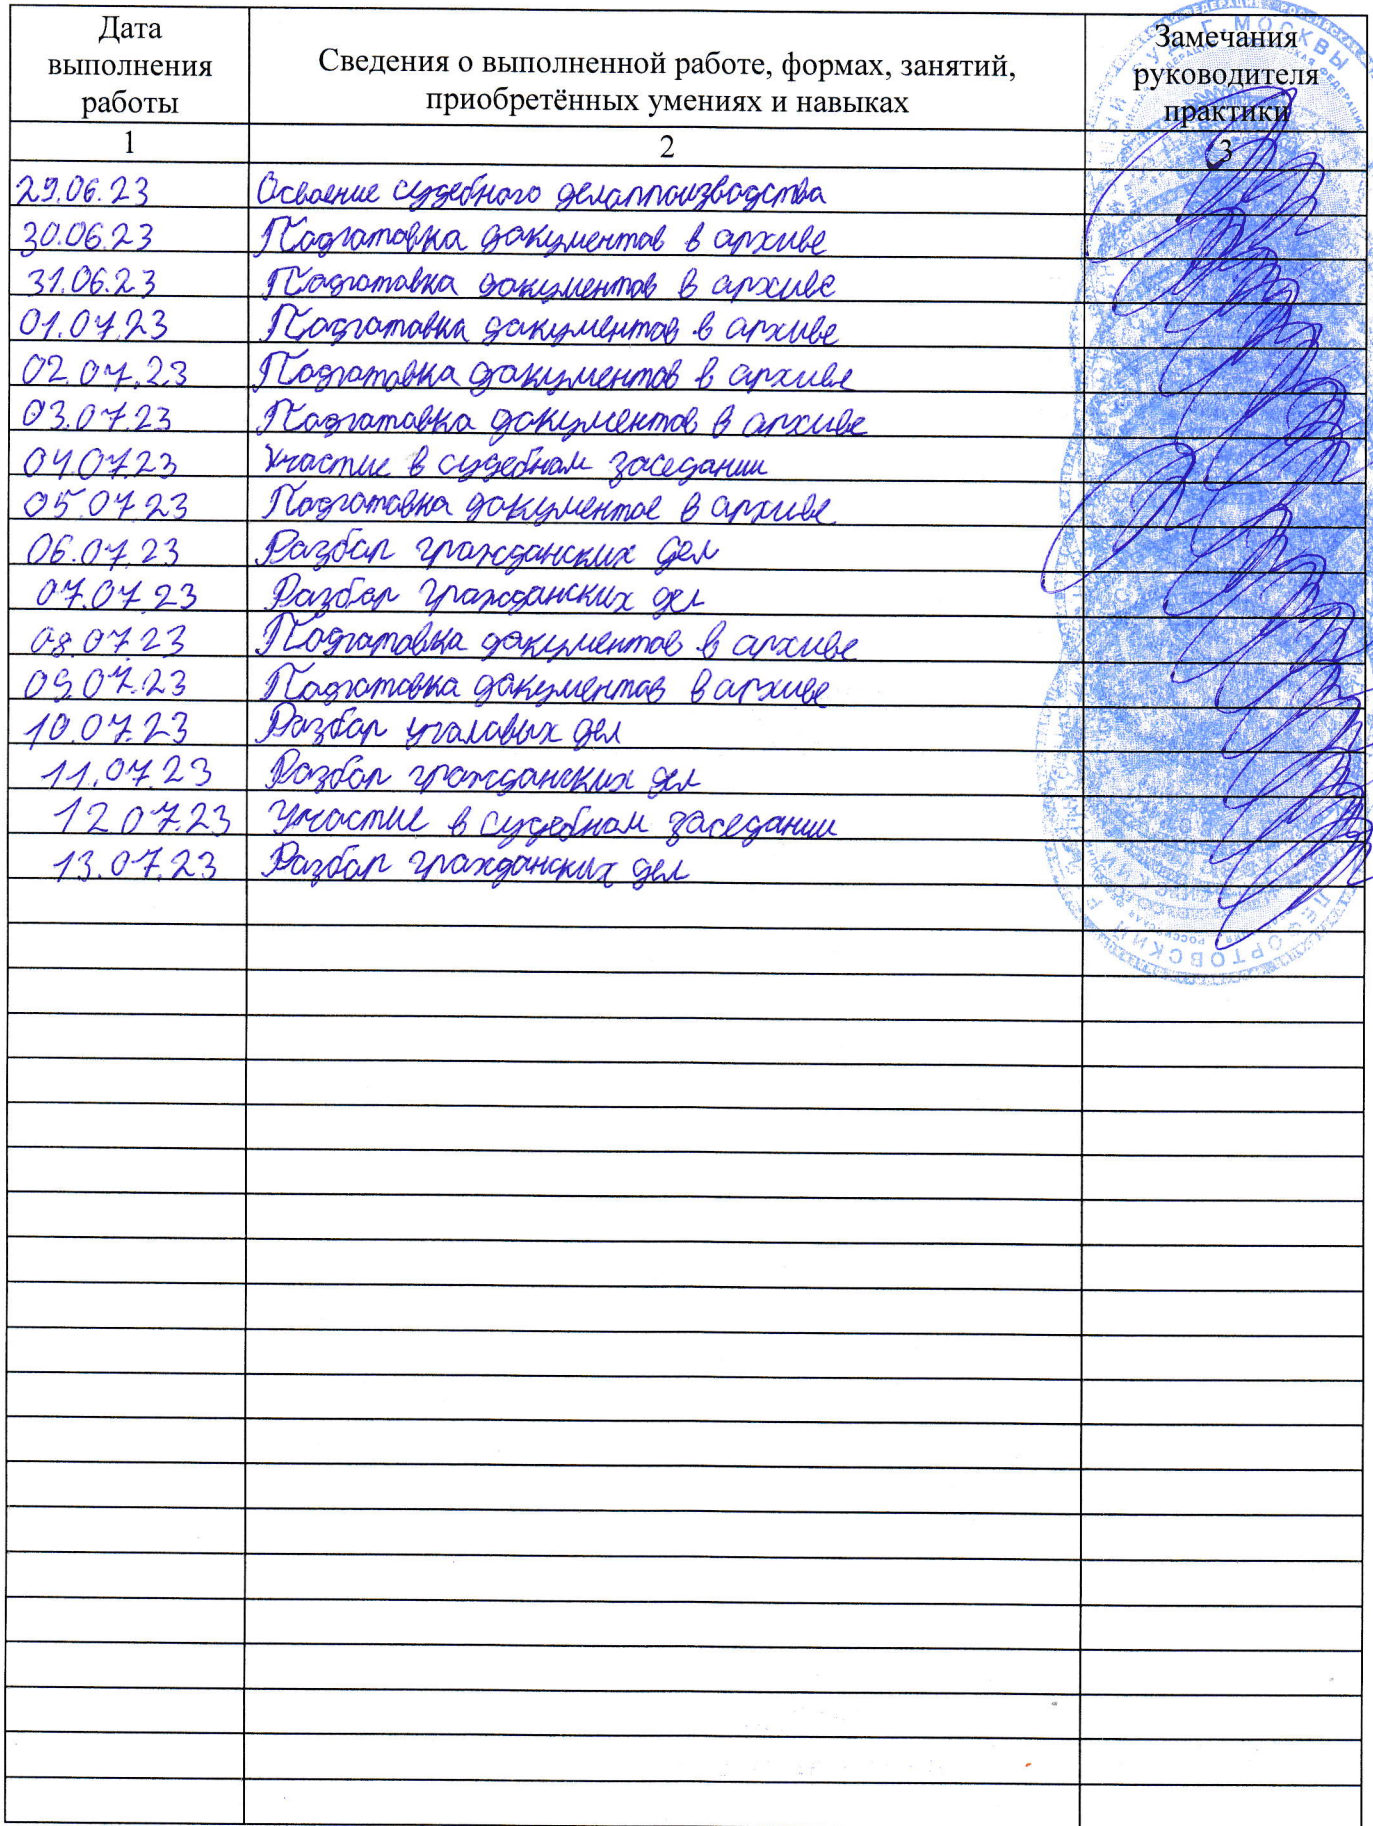 Дата выполнения работы
Сведения о выполненной работе, формах, занятий, приобретённых умениях и навыках
Замечания руководителя практики
1 2 3
29.06.23 Освоение судебного делопроизводства
30.06.23 Подготовка документов в архиве
31.06.23 Подготовка документов в архиве
01.07.23 Подготовка документов в архиве
02.07.23 Подготовка документов в архиве
03.07.23 Подготовка документов в архиве
04.07.23 Участие в судебном заседании
05.07.23 Подготовка документов в архиве
06.07.23 Разбор гражданских дел
07.07.23 Разбор гражданских дел
08.07.23 Подготовка документов в архиве
09.07.23 Подготовка документов в архиве
10.07.23 Разбор уголовых дел
11.07.23 Разбор гражданских дел
12.07.23 Участие в судебном заседании
13.07.23 Разбор гражданских дел
СУД Г. МОСКВЫ
ЛЕФОРТОВСКИЙ